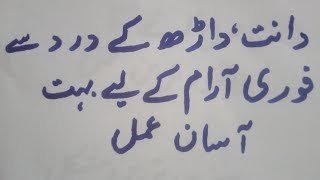 دانت، داڑھ کے درد سے
فوری آرام کے لیے بہت
آسان عمل